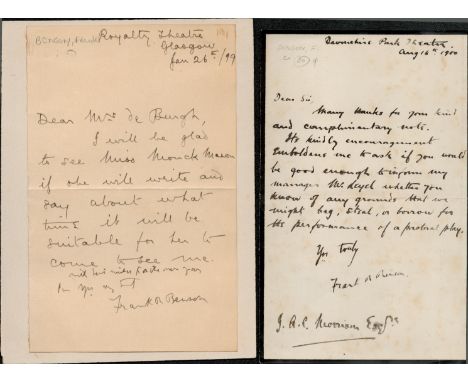 BENSON, FRANK
Royalty Theatre
Glasgow
Jan 26th/99
Dear Mrs de Burgh,
I will be glad
to see Miss Monck Mason
if she will write and
say about what
time it will be
suitable for her to
come to see me.
with kind
Frank R Benson
BENSON, F.
Devonshire Park Theatre
Aug 16th 1900
Dear Sir,
Many thanks for your kind
and complimentary note.
Its kindly encouragement
emboldens me to ask if you would
be good enough to inform my
manager Mr. whether you
know of any grounds that we
might beg, steal, or borrow for
the performance of a pastoral play.
Yrs truly
Frank R. Benson.
J. A. C. Morrison Esqre